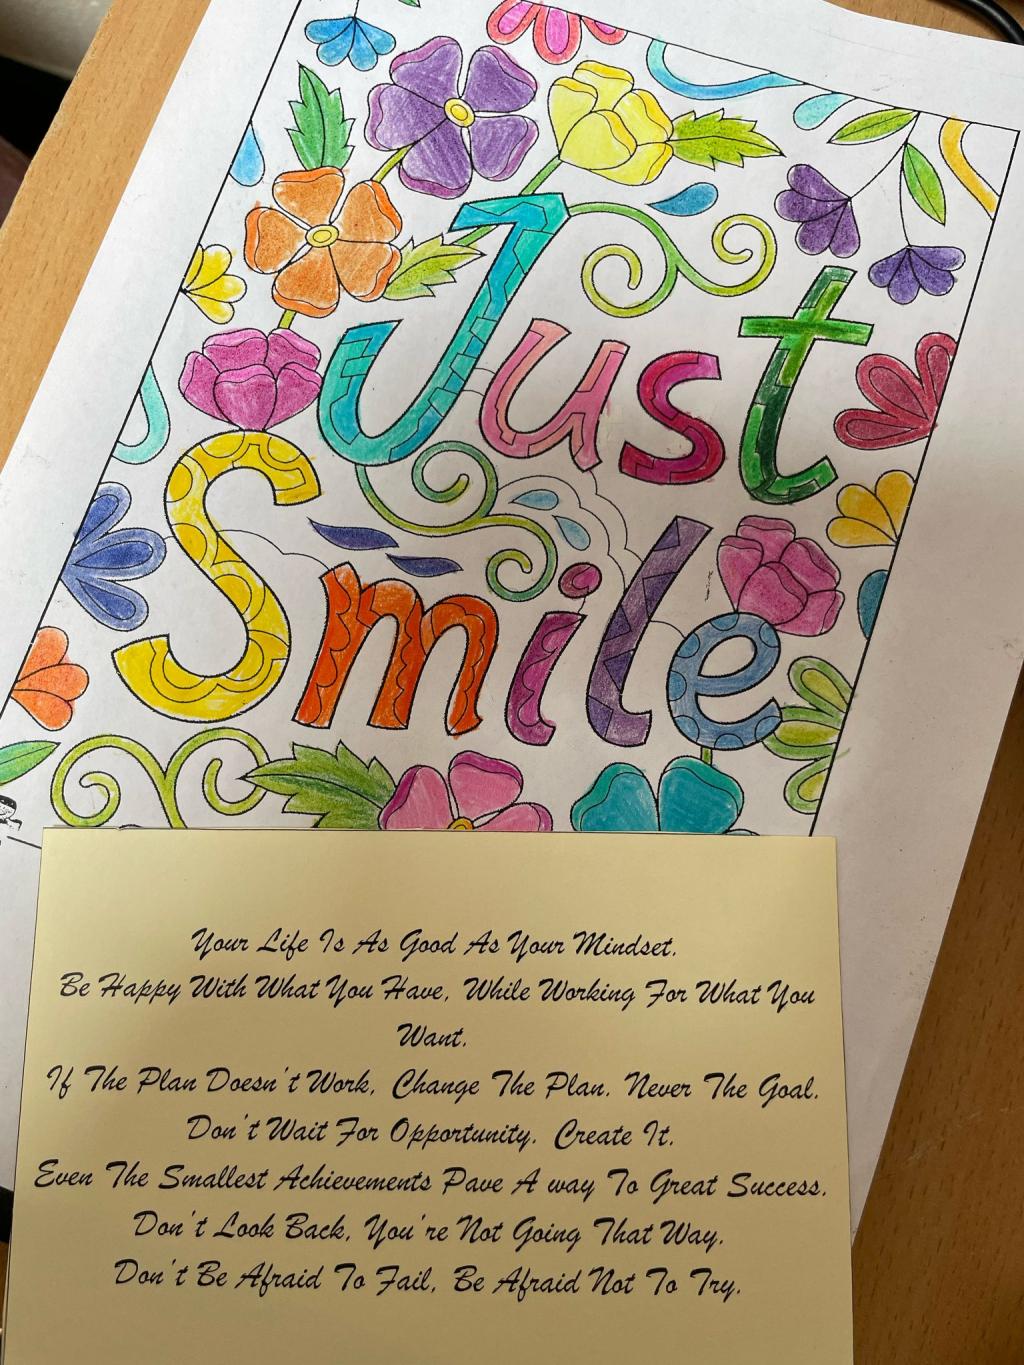 Just
Smile
Your Life Is As Good As Your Mindset.
Be Happy With What You Have, While Working For What You
Want.
If The Plan Doesn't Work, Change The Plan. Never The Goal.
Don't Wait For Opportunity. Create It.
Even The Smallest Achievements Pave A way To Great Success.
Don't Look Back, You're Not Going That Way.
Don't Be Afraid To Fail, Be Afraid Not To Try.